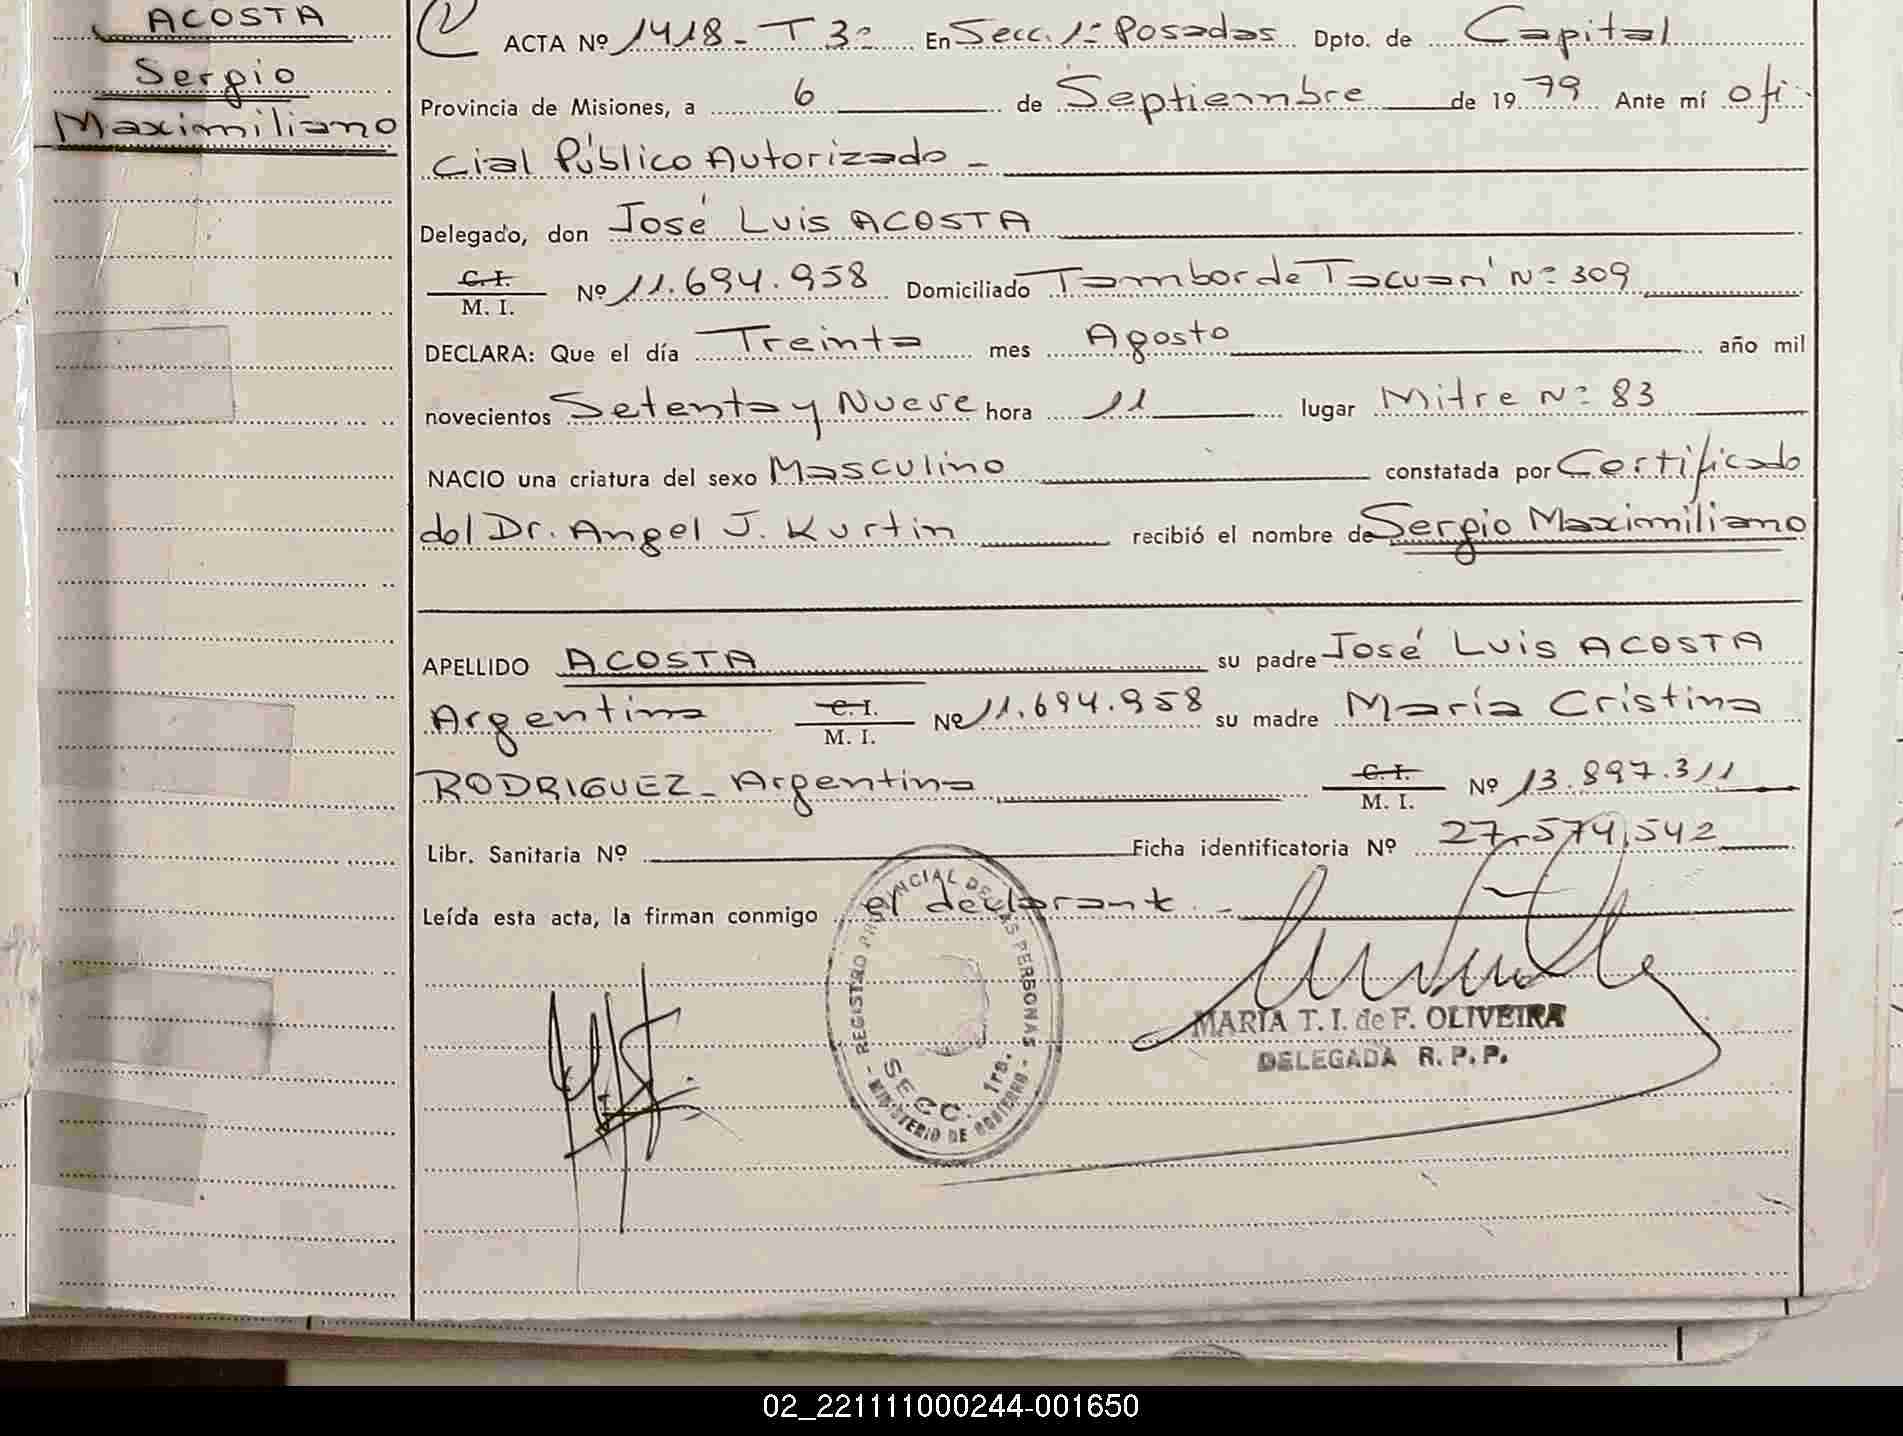 ACOSTA
Sergio
Maximiliano
ACTA Nº 1418 - T 3º En Secc. 1º Posadas Dpto. de Capital
Provincia de Misiones, a 6 de Septiembre de 1979 Ante mí ofi
cial Público Autorizado -
Delegado, don José Luis ACOSTA
C. I.
M. I. Nº 11.694.958 Domiciliado Tambor de Tacuarí Nº 309
DECLARA: Que el día Treinta mes Agosto año mil
novecientos Setenta y Nueve hora 11 lugar Mitre Nº 83
NACIO una criatura del sexo Masculino constatada por Certificado
del Dr. Angel J. Kurtin recibió el nombre de Sergio Maximiliano
APELLIDO ACOSTA su padre José Luis ACOSTA
Argentino C. I.
M. I. Nº 11.694.958 su madre María Cristina
RODRIGUEZ - Argentina C. I.
M. I. Nº 13.897.311
Libr. Sanitaria Nº Ficha identificatoria Nº 27.574.542
Leída esta acta, la firman conmigo el declarante. -
REGISTRO PROVINCIAL DE LAS PERSONAS
SECC. 1ra.
- MINISTERIO DE GOBIERNO -
MARIA T. I. de F. OLIVEIRA
DELEGADA R. P. P.
02_221111000244-001650